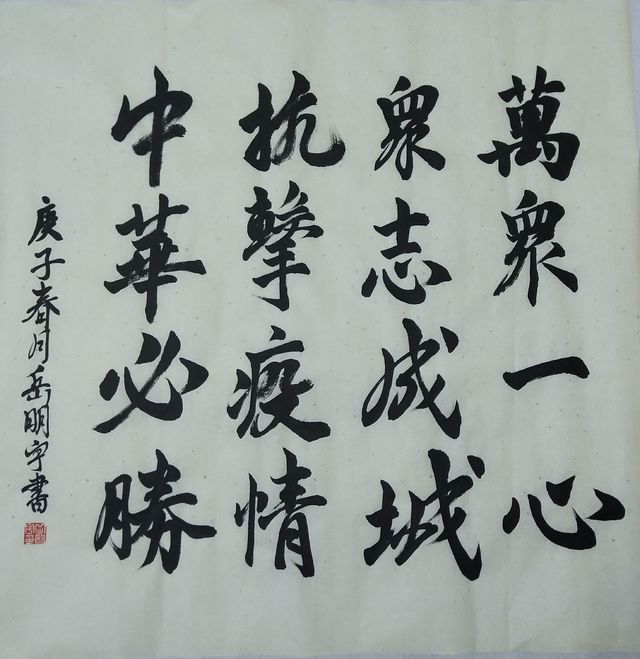 萬眾一心
眾志成城
抗擊疫情
中華必勝
庚子春月岳明宇書